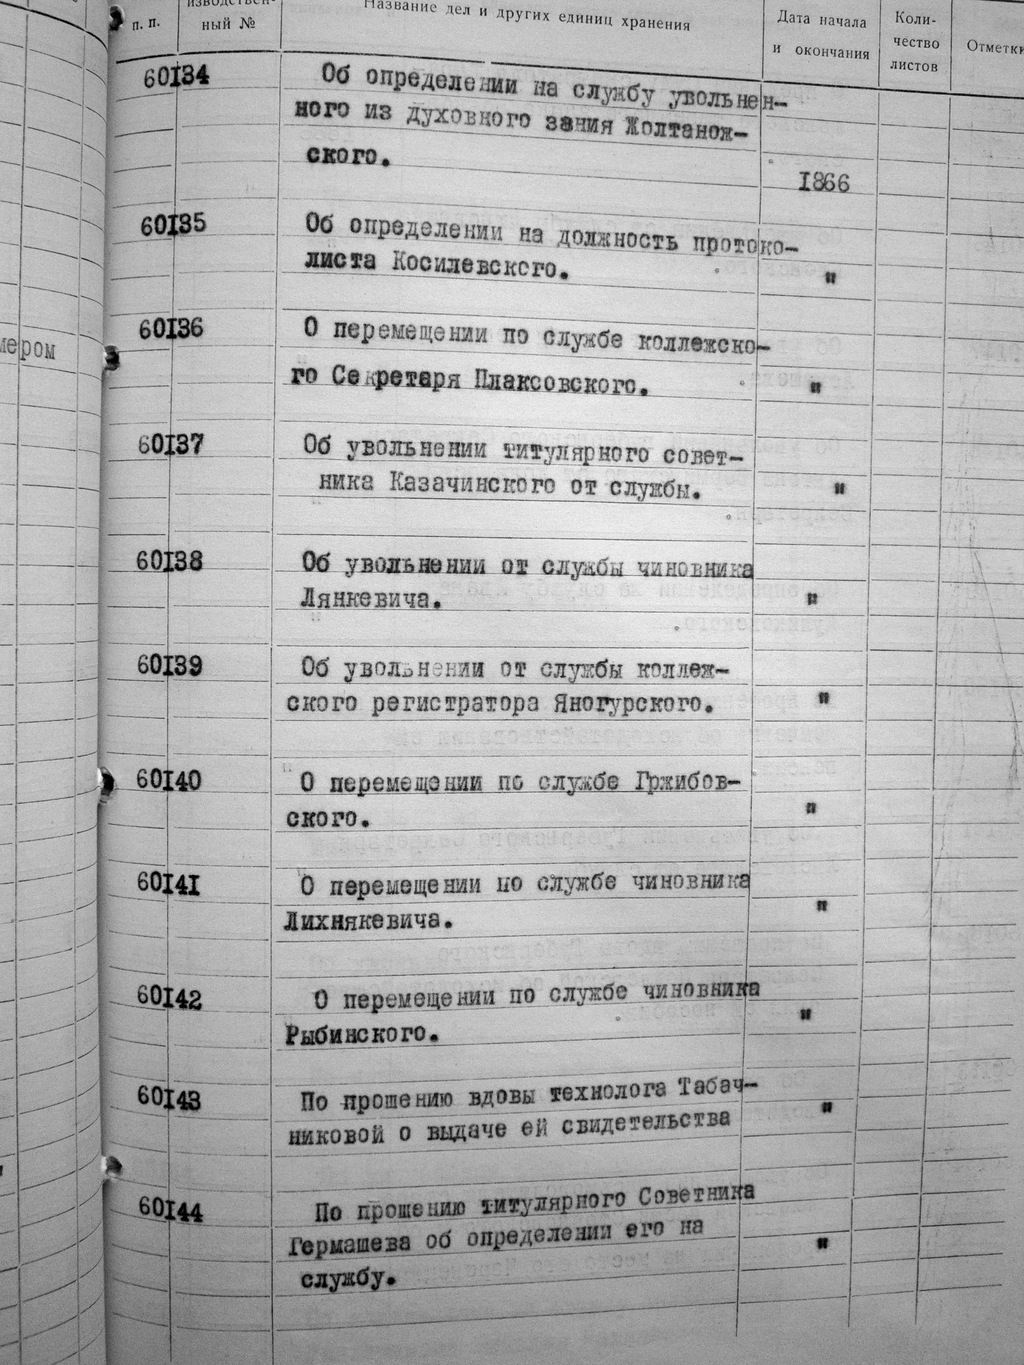 п. п.
ный №
Название дел и других единиц хранения
Дата начала
и окончания
Коли-
чество
листов
Отметки
60134
Об определении на службу увольнен-
ного из духовного зания Жолтанож-
ского.
1866
60135
Об определении на должность протоко-
листа Косилевского.
"
60136
О перемещении по службе коллежско-
го Секретаря Плаксовского.
"
60137
Об увольнении титулярного совет-
ника Казачинского от службы.
"
60138
Об увольнении от службы чиновника
Лянкевича.
"
60139
Об увольнении от службы коллеж-
ского регистратора Яногурского.
"
60140
О перемещении по службе Гржибов-
ского.
"
60141
О перемещении по службе чиновника
Лихнякевича.
"
60142
О перемещении по службе чиновника
Рыбинского.
"
60143
По прошению вдовы технолога Табач-
никовой о выдаче ей свидетельства
"
60144
По прошению титулярного Советника
Гермашева об определении его на
службу.
"
мером